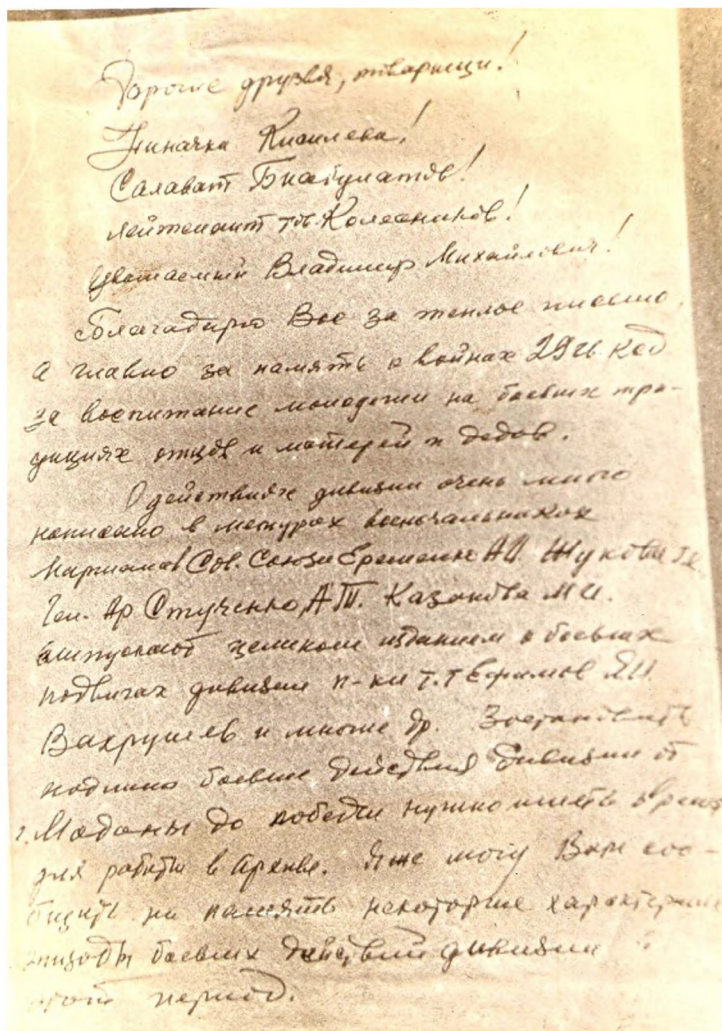 Дорогие друзья, товарищи!
Ниночка Киселева!
Салават Биабулатов!
лейтенант тов. Колесников!
уважаемый Владимир Михайлович!
Благодарю Вас за теплое письмо,
а главно за память о войнах 29й
за воспитание молодежи на боевых тра-
дициях отцов и матерей и дедов.
О действиях дивизии очень много
написано в мемурах военачальников
Маршалов Сов. Союза Еременко А.И. Жукова Г.К.
Ген. Ар Стученко А.Т. Казакова М.И.
выпускают целиком изданием о боевых
подвигах дивизии п-ки т.т Ефимов
Вахрушев и многие др.
подлино боевые действия дивизии от
г. Мадоны до победы нужно иметь время
для работы в Архиве. Я же могу Вам соо-
бщить на память некоторые характерные
эпизоды боевых действий дивизии
этот период.